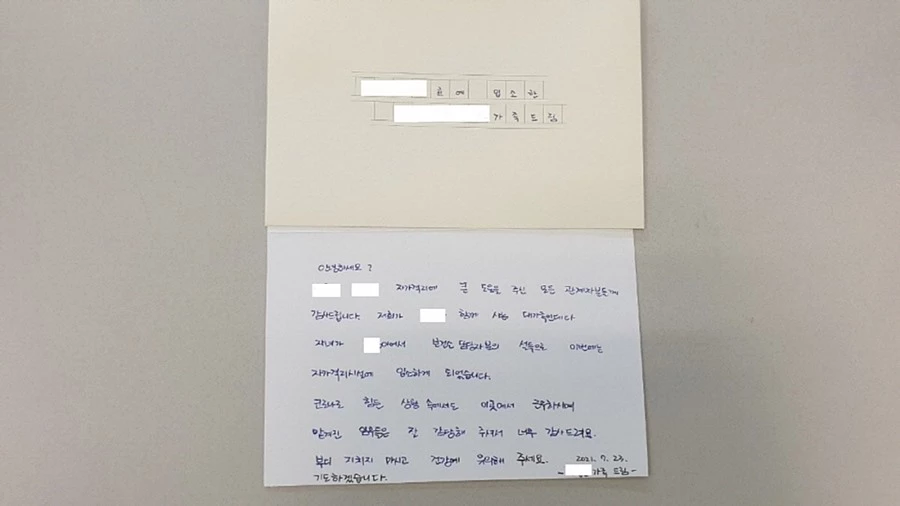 호에 입소한
가족드림
안녕하세요?
자가격리에 큰 도움을 주신 모든 관계자분들께
감사드립니다. 저희가 함께 사는 대가족인데다
자녀가 보건소 담당자분의 이번에는
자가격리시설에 입소하게 되었습니다.
코로나로 힘든 상황 속에서도 이곳에서 근무하시며
맡겨진 업무들을 잘 감당해 주셔서 너무 감사드려요.
부디 지치지 마시고 건강에 유의해 주세요. 2021. 7. 23.
기도하겠습니다. - 가족 드림-